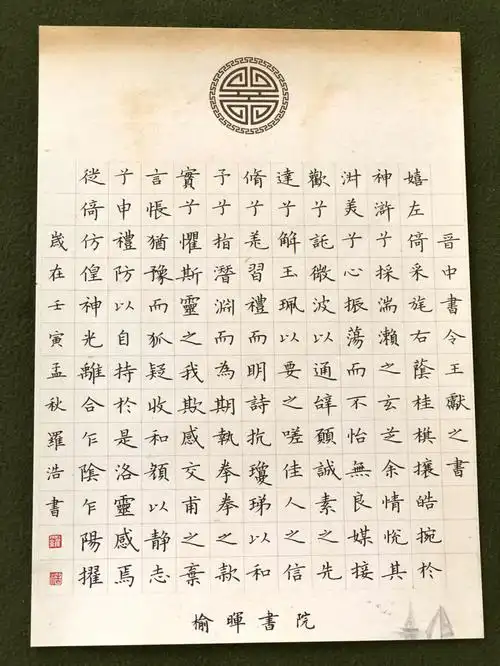 晉中書令王獻之書
嬉左倚采旄右蔭桂棋攘皓捥於
神滸兮採湍瀨之玄芝余情悅其
淑美兮心振蕩而不怡無良媒接
歡兮託微波以通辭願誠素之先
達兮解玉珮以要之嗟佳人之信
脩兮羌習禮而明詩抗瓊珶以和
予兮指潛淵而為期執拳拳之款
實兮懼斯靈之我欺感交甫之棄
言悵猶豫而狐疑收和顏以静志
兮申禮防以自持於是洛靈感焉
徙倚仿偟神光離合乍陰乍陽擢
歲在壬寅孟秋羅浩書
榆暉書院